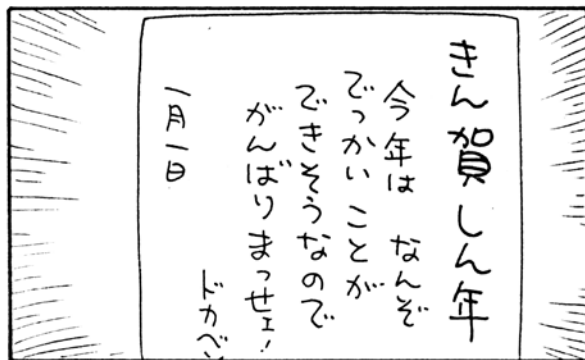 きん賀しん年
今年は なんぞ
でっかいことが
できそうなので
がんばりまっせェ!
ドカベン
一月一日